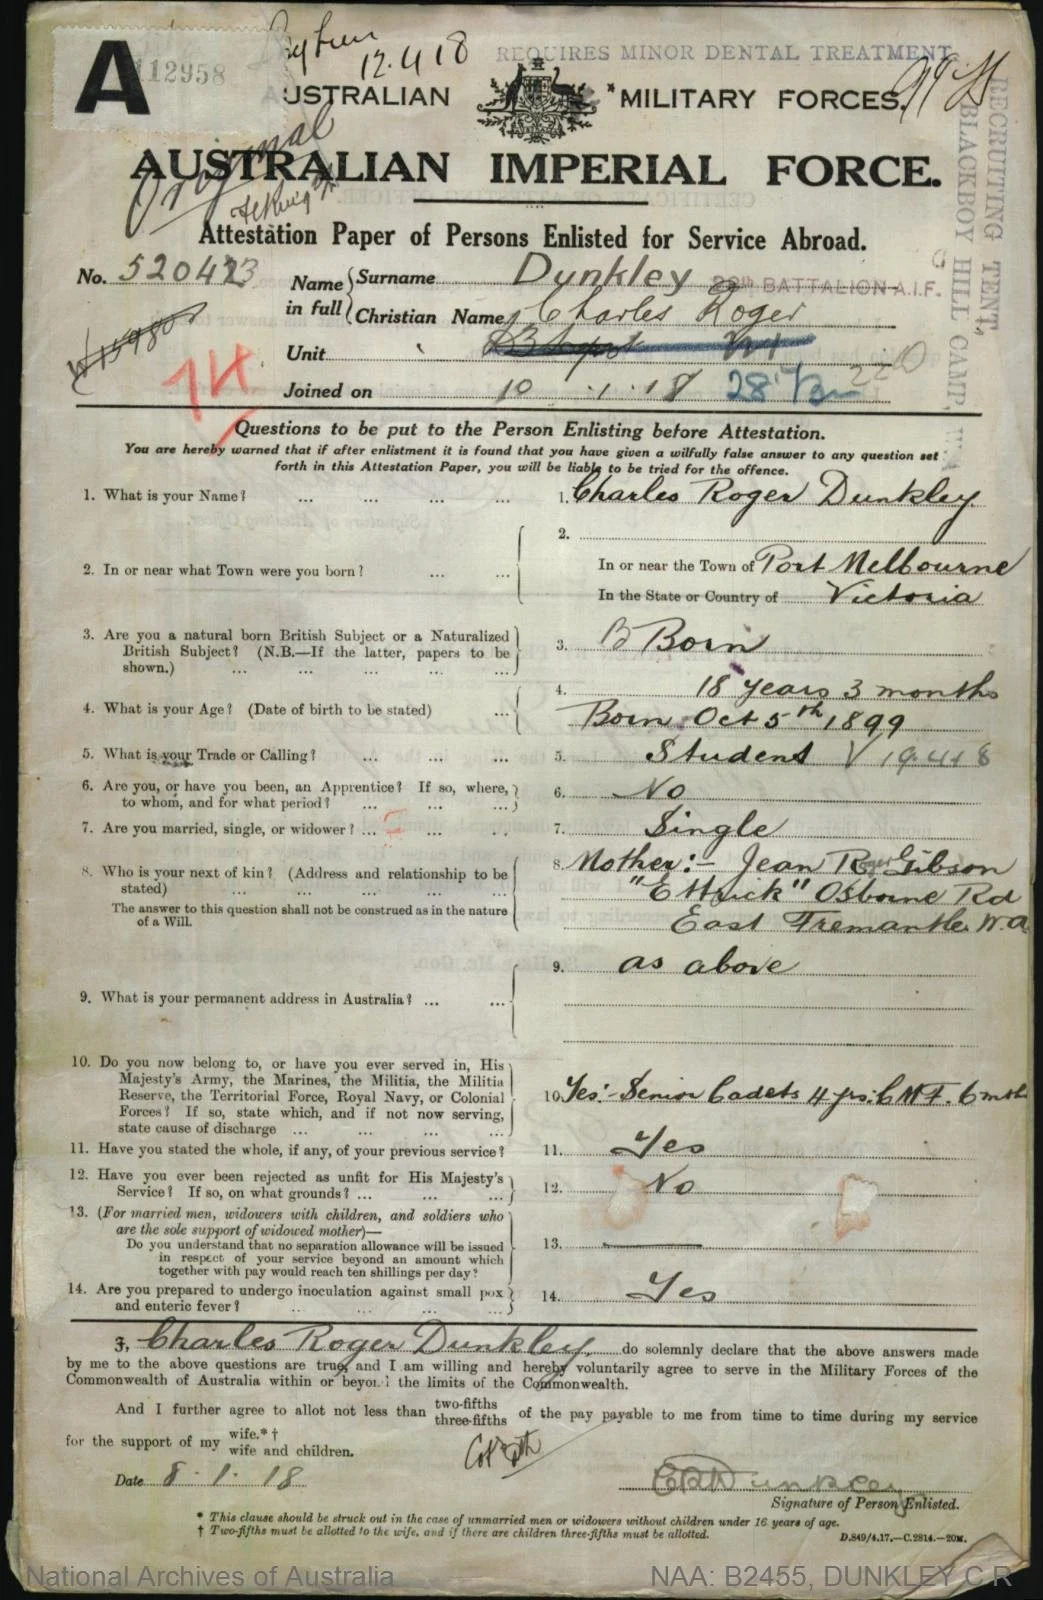 A
112958
12.4.18
REQUIRES MINOR DENTAL TREATMENT
AUSTRALIAN MILITARY FORCES.
RECRUITING TENT,
BLACKBOY HILL CAMP, W.A.
Original
AUSTRALIAN IMPERIAL FORCE.
Attestation Paper of Persons Enlisted for Service Abroad.
No. 520423
Name in full { Surname Dunkley
28th BATTALION A.I.F.
Christian Name Charles Roger
Unit
Joined on 10.1.18 28 Bn
Questions to be put to the Person Enlisting before Attestation.
You are hereby warned that if after enlistment it is found that you have given a wilfully false answer to any question set
forth in this Attestation Paper, you will be liable to be tried for the offence.
1. What is your Name? ... ... ... ... 1. Charles Roger Dunkley
2. In or near what Town were you born? ... ... 2.
In or near the Town of Port Melbourne
In the State or Country of Victoria
3. Are you a natural born British Subject or a Naturalized
British Subject? (N.B.—If the latter, papers to be
shown.) ... ... ... ... 3. B Born
4. What is your Age? (Date of birth to be stated) ... 4. 18 years 3 months
Born Oct 5th 1899
5. What is your Trade or Calling? ... ... ... 5. Student
6. Are you, or have you been, an Apprentice? If so, where,
to whom, and for what period? ... ... ... 6. No
7. Are you married, single, or widower? ... ... ... 7. Single
8. Who is your next of kin? (Address and relationship to be
stated) ... ... ... ...
The answer to this question shall not be construed as in the nature
of a Will.
8. Mother:- Jean Roger Gibson
"Ettrick" Osborne Rd
East Fremantle W.A
9. What is your permanent address in Australia? ... ... 9. as above
10. Do you now belong to, or have you ever served in, His
Majesty's Army, the Marines, the Militia, the Militia
Reserve, the Territorial Force, Royal Navy, or Colonial
Forces? If so, state which, and if not now serving,
state cause of discharge ... ... ... 10. Yes:- Senior Cadets 4 yrs. C.M.F. 6 mths
11. Have you stated the whole, if any, of your previous service? 11. Yes
12. Have you ever been rejected as unfit for His Majesty's
Service? If so, on what grounds? ... ... ... 12. No
13. (For married men, widowers with children, and soldiers who
are the sole support of widowed mother)—
Do you understand that no separation allowance will be issued
in respect of your service beyond an amount which
together with pay would reach ten shillings per day? 13.
14. Are you prepared to undergo inoculation against small pox
and enteric fever? ... ... ... 14. Yes
I, Charles Roger Dunkley, do solemnly declare that the above answers made
by me to the above questions are true, and I am willing and hereby voluntarily agree to serve in the Military Forces of the
Commonwealth of Australia within or beyond the limits of the Commonwealth.
And I further agree to allot not less than two-fifths three-fifths of the pay payable to me from time to time during my service
for the support of my wife.*† wife and children.
Date 8.1.18
C R Dunkley
Signature of Person Enlisted.
* This clause should be struck out in the case of unmarried men or widowers without children under 16 years of age.
† Two-fifths must be allotted to the wife, and if there are children three-fifths must be allotted.
D.849/4.17.—C.2814.—20M.
National Archives of Australia NAA: B2455, DUNKLEY C R